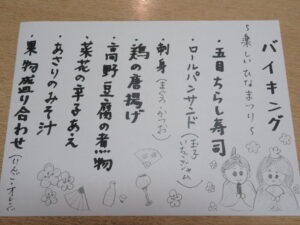 バイキング
～楽しいひなまつり～
・五目ちらし寿司
・ロールパンサンド(玉子 いちごジャム)
・刺身(まぐろ・かつお)
・鶏の唐揚げ
・高野豆腐の煮物
・菜花の辛子あえ
・あさりのみそ汁
・果物盛り合わせ(りんご・オレンジ)